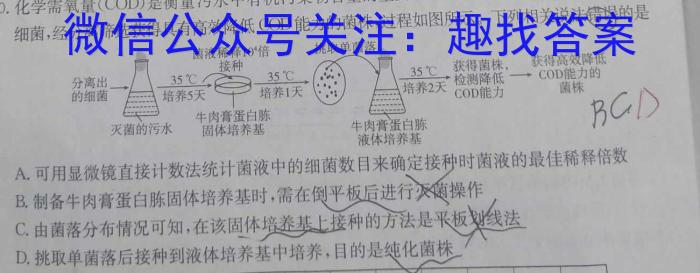 化学需氧量(COD)是衡量污水中有机污染物
细菌,经
下列相关说法错误的是
微信公众号关注：趣找答案
分离出的细菌
灭菌的污水
35℃
培养5天
接种
牛肉膏蛋白胨
固体培养基
35℃
培养1天
挑取单菌落
牛肉膏蛋白胨
液体培养基
35℃
培养2天
获得菌株,
检测降低
COD能力
获得高效降低
COD能力的
菌株
BCD
A.可用显微镜直接计数法统计菌液中的细菌数目来确定接种时菌液的最佳稀释倍数
B.制备牛肉膏蛋白胨固体培养基时,需在倒平板后进行灭菌操作
C.由菌落分布情况可知,在该固体培养基上接种的方法是平板划线法
D.挑取单菌落后接种到液体培养基中培养,目的是纯化菌株